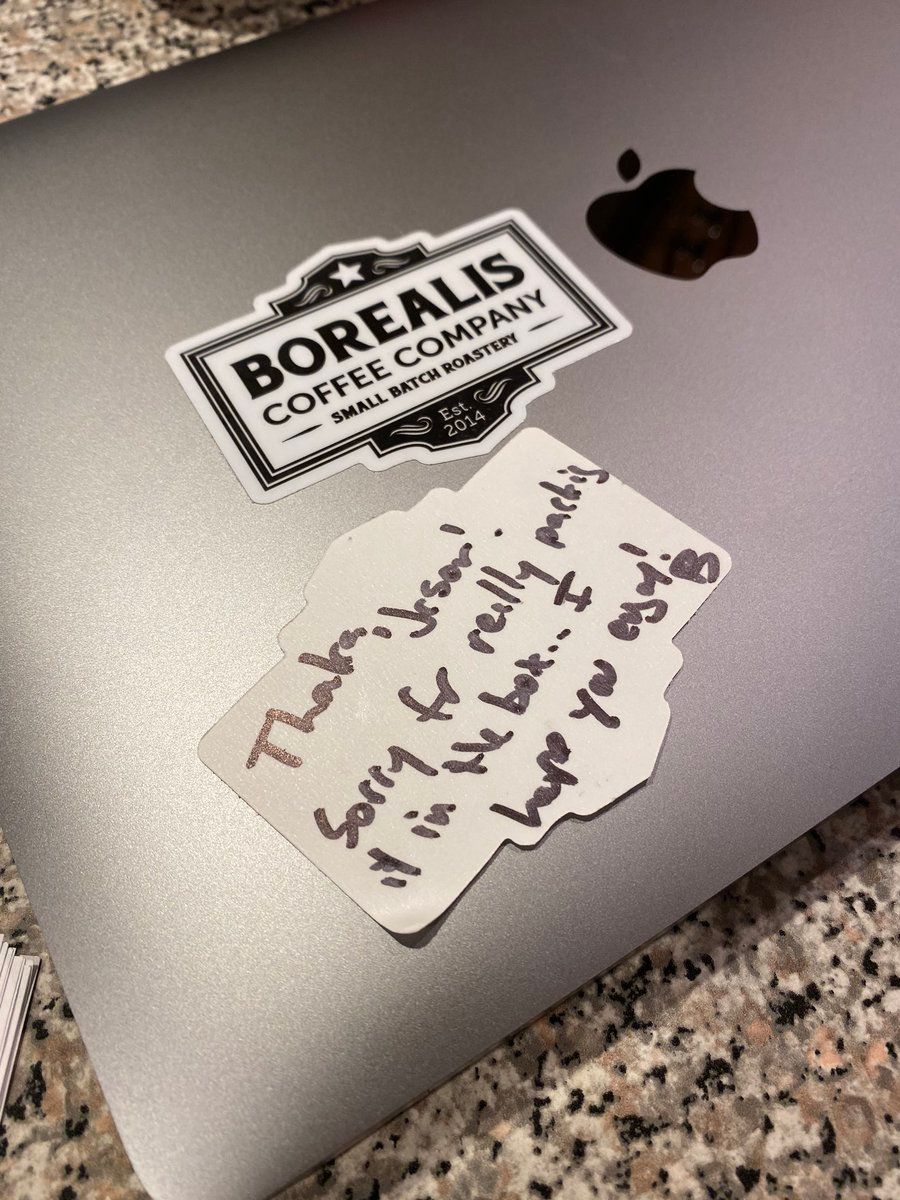 BOREALIS
COFFEE COMPANY
SMALL BATCH ROASTERY
Est.
2014
Thanks, Jason!
Sorry for really packing
it in the box... I
hope you enjoy!
B